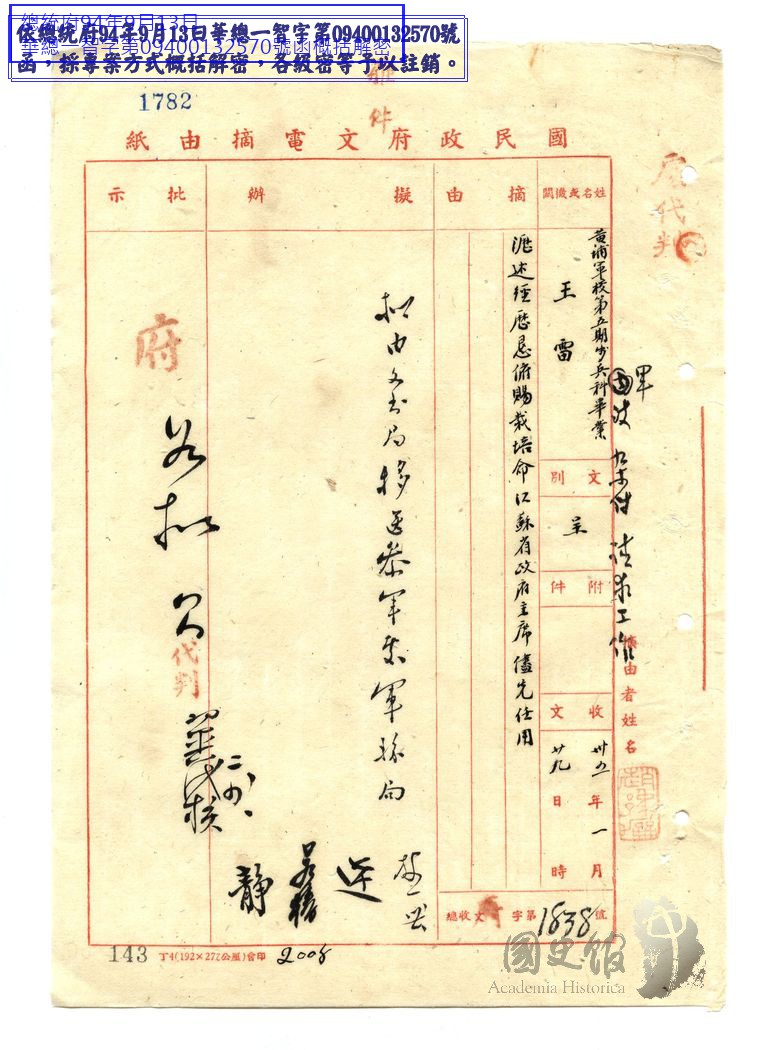 總統府94年9月13日
華總一智字第09400132570號函概括解密
依總統府94年9月13日華總一智字第09400132570號
函，採專案方式概括解密，各級密等予以註銷。
1782
件
國民政府文電摘由紙
姓名或機關
黃埔軍校第五期步兵科畢業
王雷
文別
呈
附件
收文
卅五年一月
廿九日時
摘由
瀝述經歷懇俯賜栽培命江蘇省政府主席儘先任用
擬辦
擬由文書局移送參軍處軍務局
批示
府
代判
如擬
代判
摘由者姓名
請求工作
總收文 字第1838號
143
丁4(192×272公厘)會印
2008
國史館
Academia Historica